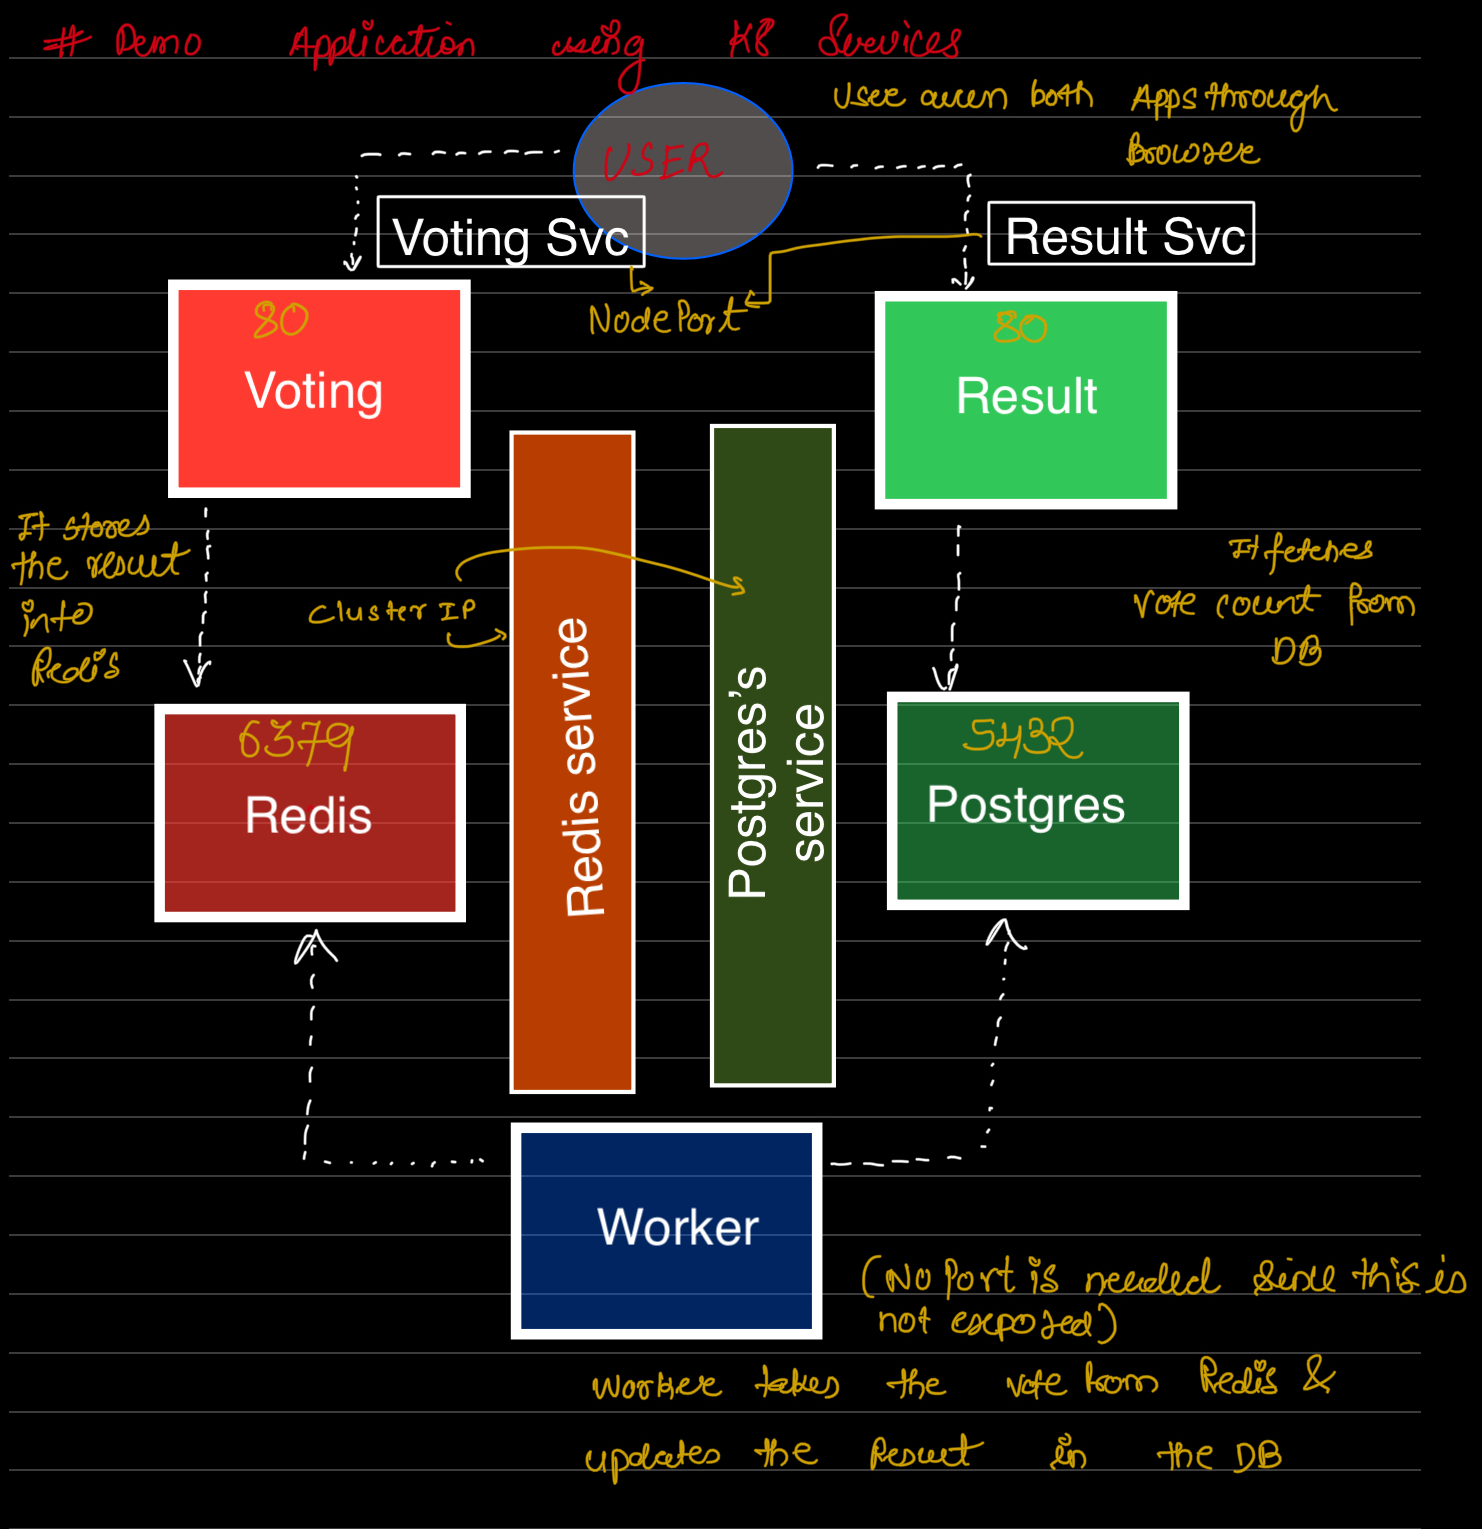 # Demo Application using K8 Services
User access both Apps through
Browser
USER
Voting Svc
Result Svc
NodePort
80
Voting
80
Result
It stores
the result
into
Redis
Cluster IP
It fetches
Vote count from
DB
Redis service
Postgres’s
service
6379
Redis
5432
Postgres
Worker
(No Port is needed since this is
not exposed)
Worker takes the vote from Redis &
updates the Result in the DB